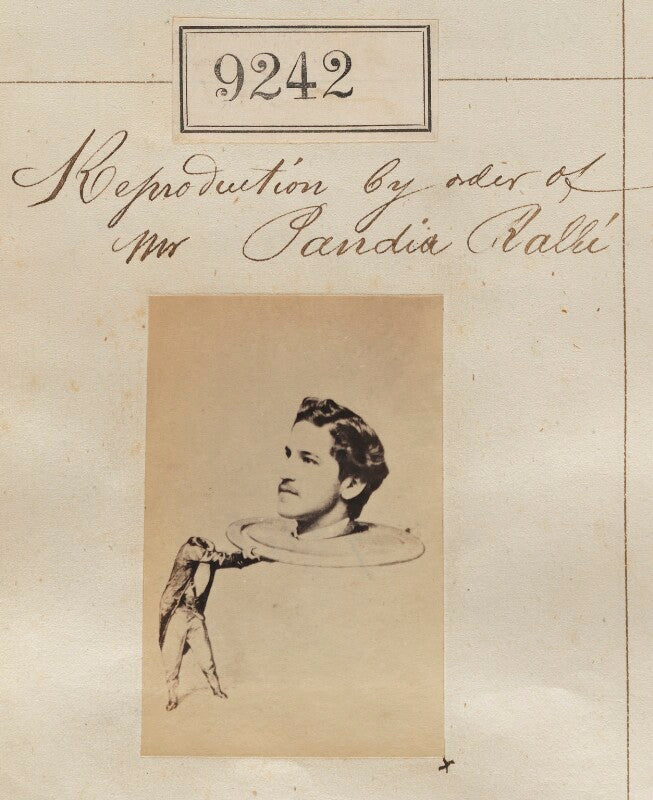 9242
Reproduction by order of
Mr Pandia Ralli
x